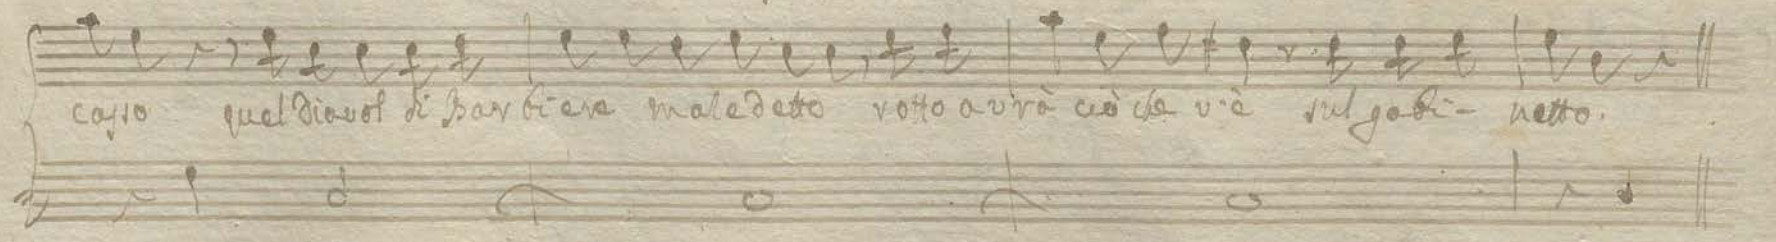 casso quel diavol di Barbiere maledetto rotto avrà ciò che v'è sul gabi- netto.